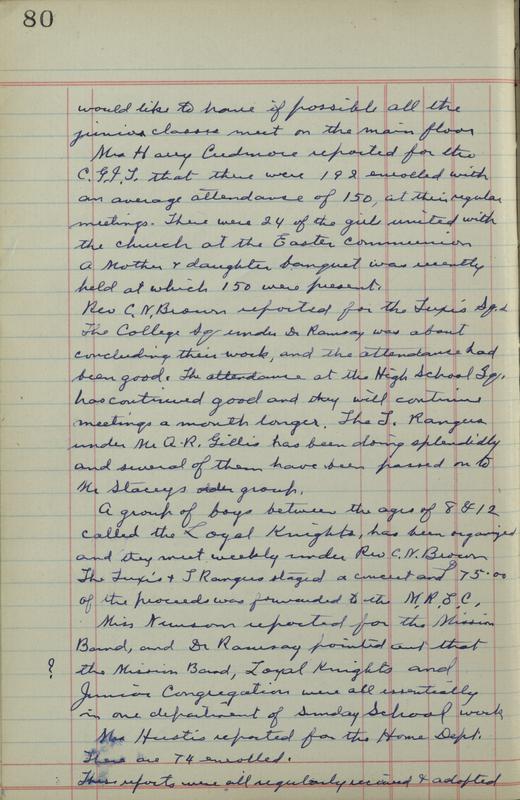 80
would like to have if possible all the
junior classes meet on the main floor
Mrs Harry Cudmore reported for the
C.G.I.T. that there were 192 enrolled with
an average attendance of 150, at their regular
meetings. There were 24 of the girls united with
the church at the Easter Communion
A Mother & daughter banquet was recently
held at which 150 were present.
Rev C.N. Brown reported for the Tuxis Sqs
The College Sq under Dr Ramsay was about
concluding their work, and the attendance had
been good. The attendance at the High School Sq.
has continued good and they will continue
meetings a month longer. The T. Rangers
under Mr A.R. Gillis has been doing splendidly
and several of them have been passed on to
Mr Staceys group.
A group of boys between the ages of 8 & 12
called the Loyal Knights, has been organized
and they meet weekly under Rev C.N. Brown
The Tuxis & T Rangers staged a concert and $75.00
of the proceeds was forwarded to the M.R.E.C.
Miss Newsom reported for the Mission
Band, and Dr Ramsay pointed out that
? the Mission Band, Loyal Knights and
Junior Congregation were all essentially
in one department of Sunday School work
Mrs Hustis reported for the Home Dept.
There are 74 enrolled.
These reports were all regularly received & adopted